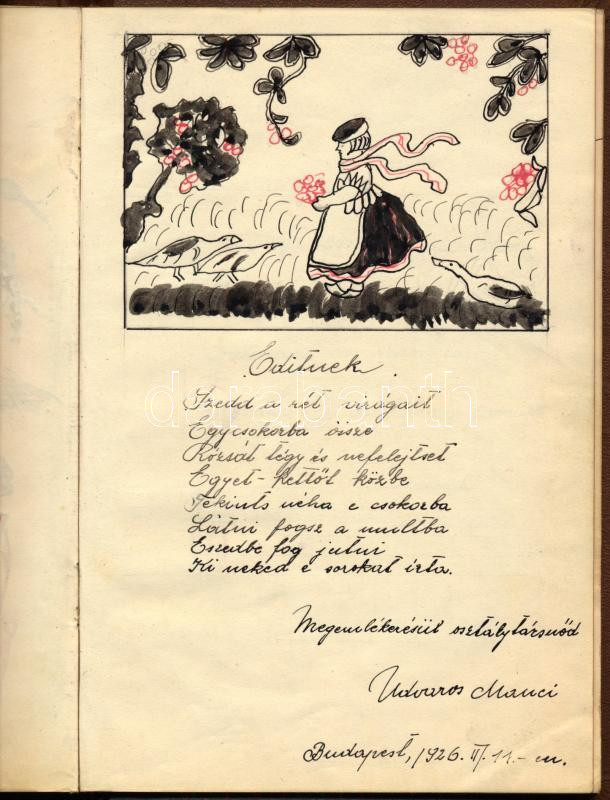 Editnek.
Szedd a rét virágait
Egycsokorba össze
Rózsát tégy és nefelejtset
Egyet-kettőt közbe
Tekints néha e csokorba
Látni fogsz a multba
Eszedbe fog jutni
Ki neked e sorokat írta.
Megemlékezésül osztálytársnőd
Udvaros Manci
Budapest, 1926. II. 11.-én.
darabanth